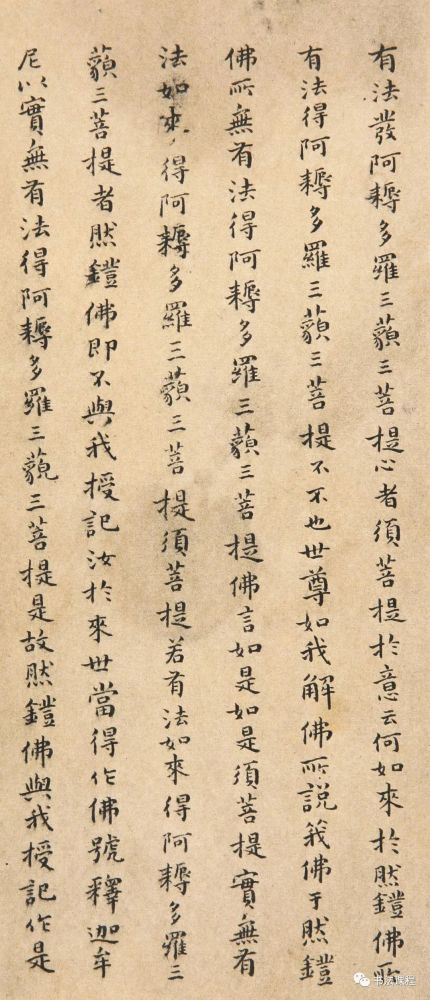 有法發阿耨多羅三藐三菩提心者須菩提於意云何如來於然鐙佛所
有法得阿耨多羅三藐三菩提不不也世尊如我解佛所說義佛于然鐙
佛所無有法得阿耨多羅三藐三菩提佛言如是如是須菩提實無有
法如來得阿耨多羅三藐三菩提須菩提若有法如來得阿耨多羅三
藐三菩提者然鐙佛即不與我授記汝於來世當得作佛號釋迦牟
尼以實無有法得阿耨多羅三藐三菩提是故然鐙佛與我授記作是
书法课程